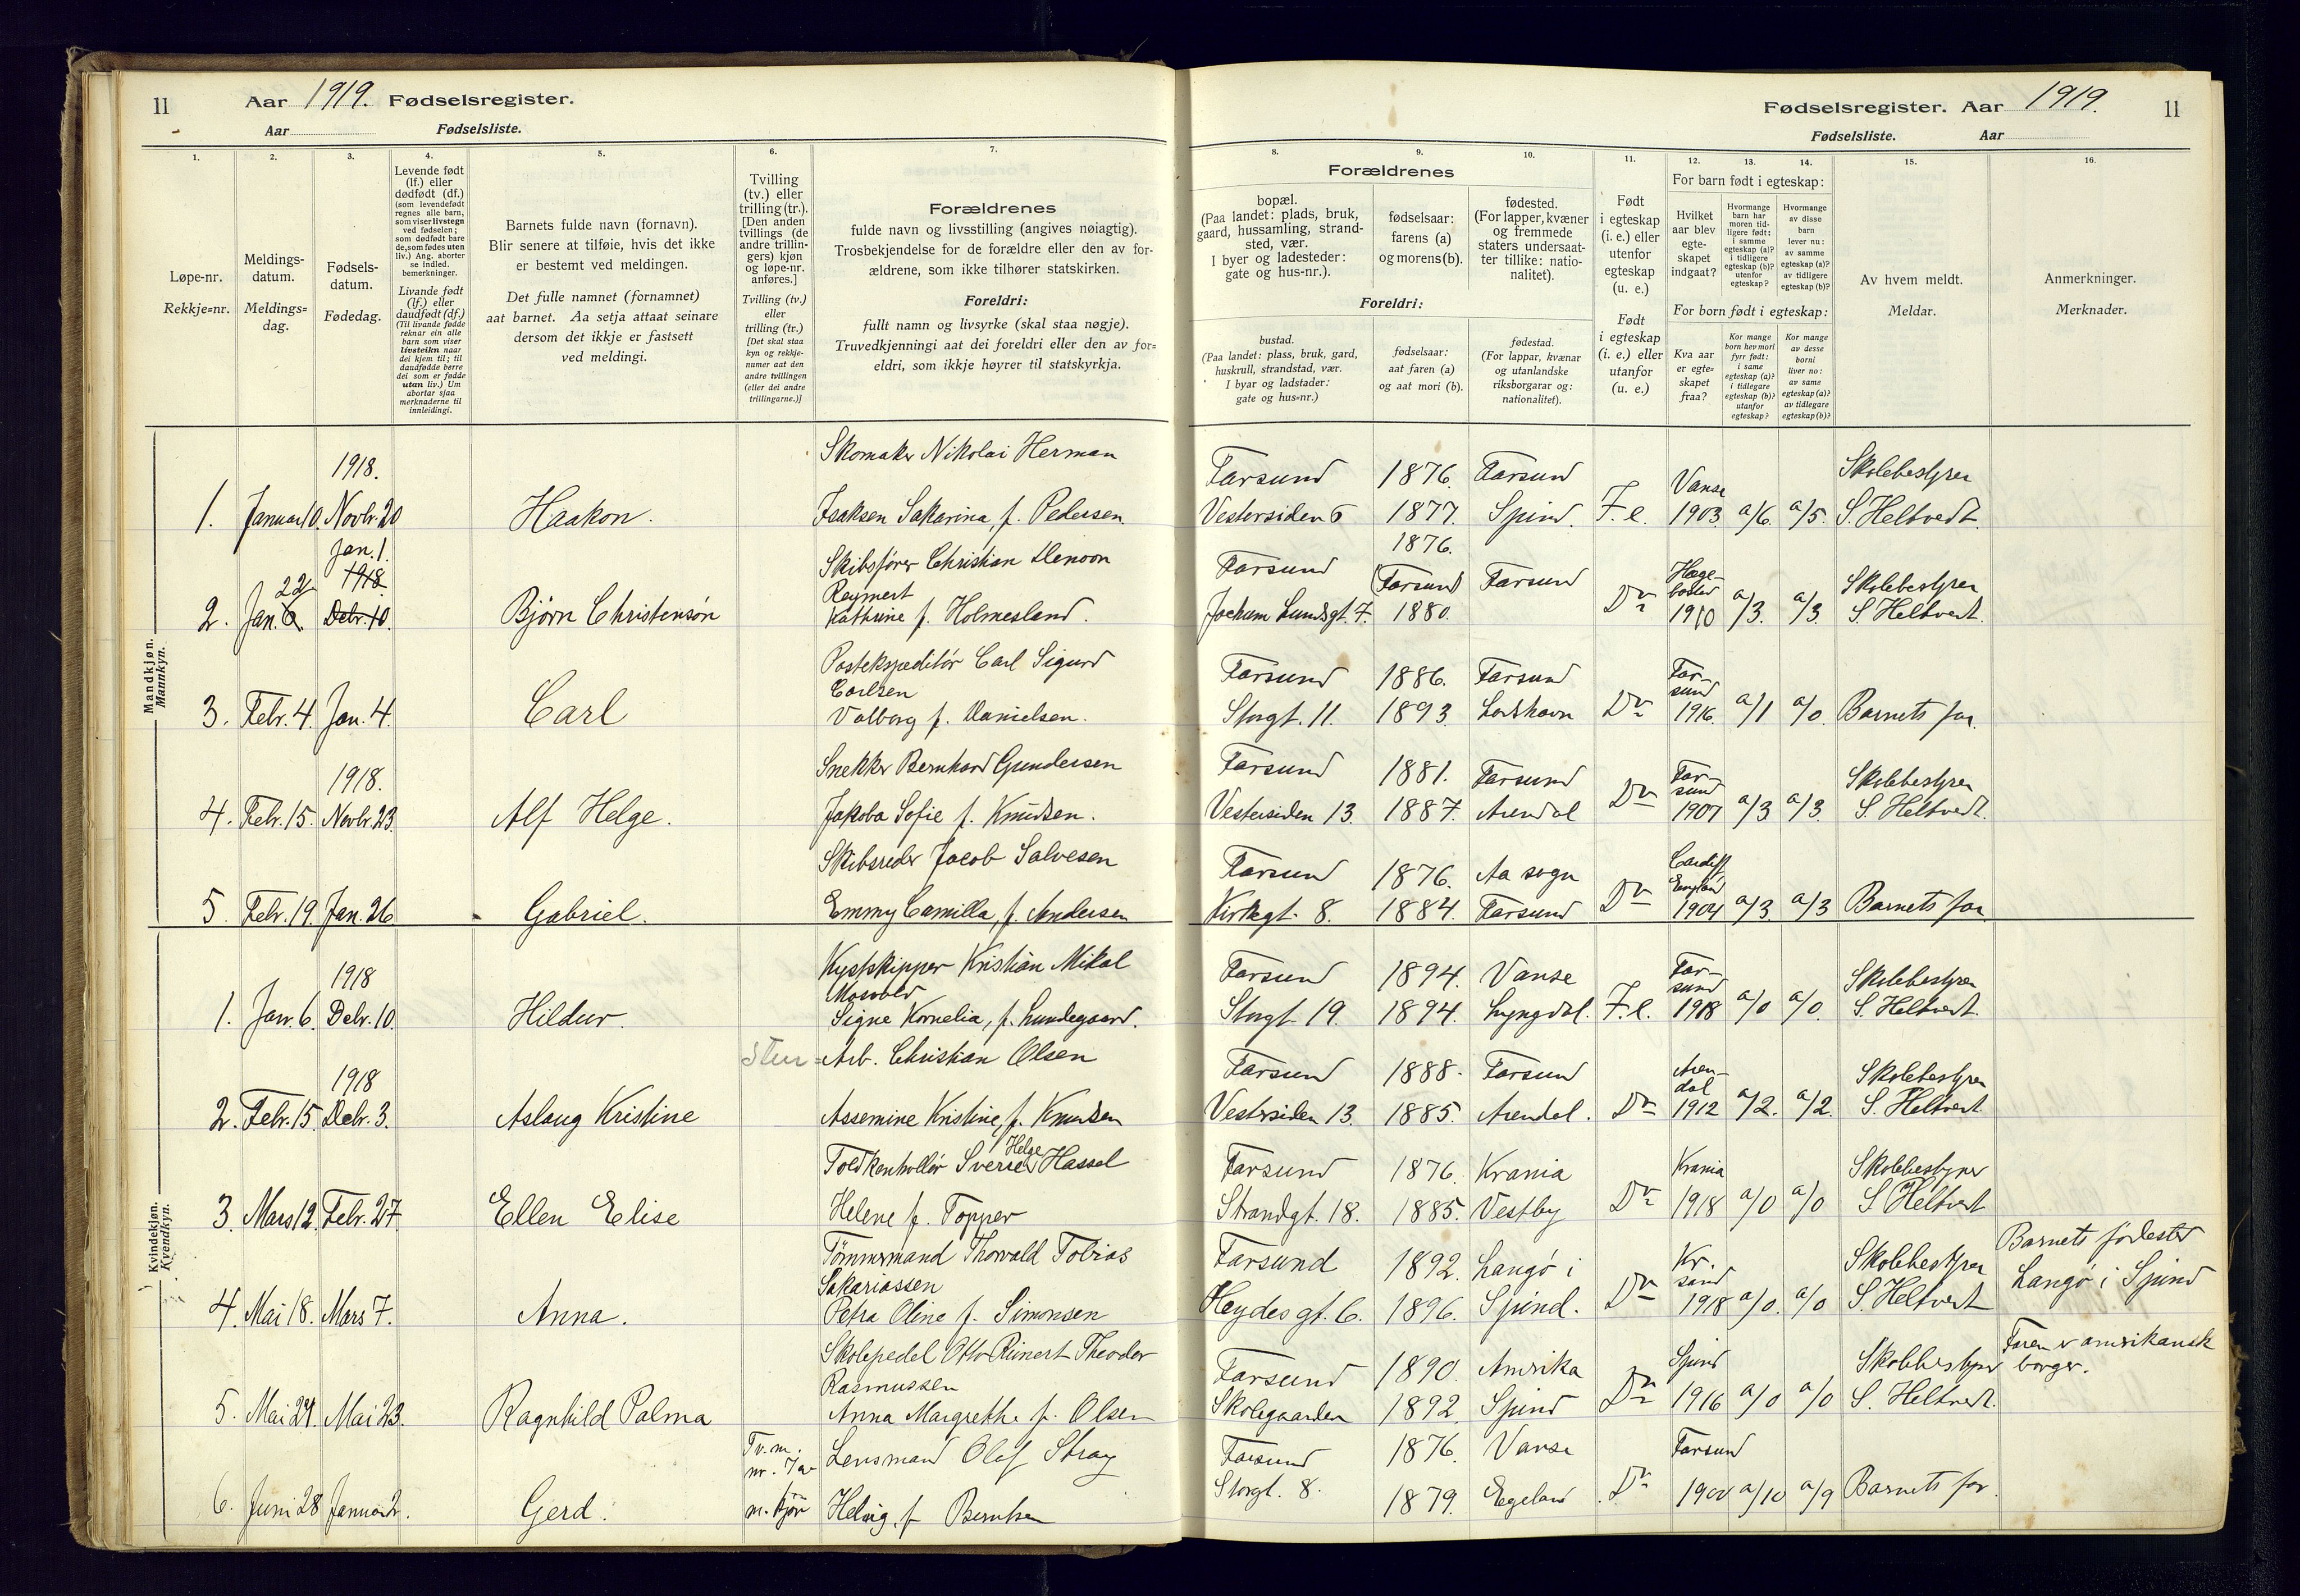 11 Aar 1919. Fødselsregister.
Aar Fødselsliste.
Fødselsregister. Aar 1919. 11
Fødselsliste. Aar
1.
Løpe-nr.
Rekkje=nr.
2.
Meldings-
datum.
Meldings=
dag.
3.
Fødsels-
datum.
Fødedag.
4.
Levende født
(lf.) eller
dødfødt (df.)
(som levendefødt
regnes alle barn,
som viser livstegn
ved fødselen;
som dødfødt bare
de, som fødes uten
liv.) Ang. aborter
se indled.
bemerkninger.
Livande født
(lf.) eller
daudfødt (df.)
(Til livande fødde
reknar ein alle
barn som viser
livsteikn naar
dei kjem til; til
daudfødde berre
dei som er fødde
utan liv.) Um
abortar sjaa
merknaderne til
innleidingi.
5.
Barnets fulde navn (fornavn).
Blir senere at tilføie, hvis det ikke
er bestemt ved meldingen.
Det fulle namnet (fornamnet)
aat barnet. Aa setja attaat seinare
dersom det ikkje er fastsett
ved meldingi.
6.
Tvilling
(tv.) eller
trilling (tr.).
[Den anden
tvillings (de
andre trillin-
gers) kjøn
og løpe-nr.
anføres.]
Tvilling (tv.)
eller
trilling (tr.)
[Det skal staa
kyn og rekkje-
numer aat den
andre tvillingen
(eller dei andre
trillingarne.)]
7.
Forældrenes
fulde navn og livsstilling (angives nøiagtig).
Trosbekjendelse for de forældre eller den av for-
ældrene, som ikke tilhører statskirken.
Foreldri:
fullt namn og livsyrke (skal staa nøgje).
Truvedkjenningi aat dei foreldri eller den av for=
eldri, som ikkje høyrer til statskyrkja.
Forældrenes
8.
bopæl.
(Paa landet: plads, bruk,
gaard, hussamling, strand-
sted, vær.
I byer og ladesteder:
gate og hus-nr.).
9.
fødselsaar:
farens (a)
og morens (b).
10.
fødested.
(For lapper, kvæner
og fremmede
staters undersaat-
ter tillike: natio-
nalitet).
Foreldri:
bustad.
(Paa landet: plass, bruk, gard,
huskrull, strandstad, vær.
I byar og ladstader:
gate og hus=nr.)
fødselsaar:
aat faren (a)
og aat mori (b).
fødestad.
(For lappar, kvænar
og utanlandske
riksborgarar og:
nationalitet).
11.
Født
i egteskap
(i. e.) eller
utenfor
egteskap
(u. e.)
Født
i egteskap
(i. e.) eller
utanfor
egteskap
(u. e.)
12. 13. 14.
For barn født i egteskap:
Hvilket
aar blev
egte-
skapet
indgaat?
Hvormange
barn har
moren tid-
ligere født:
i samme
egteskap (a)?
i tidligere
egteskap (b)?
utenfor
egteskap?
Hvormange
av disse
barn
lever nu:
av samme
egteskap (a)?
av tidligere
egteskap (b)?
For born født i egteskap:
Kva aar
er egte=
skapet
fraa?
Kor mange
born hev mori
fyrr født:
i same
egteskap (a)?
i tidlegare
egteskap (b)?
utanfor
egteskap?
Kor mange
av desse
borni
liver no:
av same
egteskap (a)?
av tidlegare
egteskap (b)?
15.
Av hvem meldt.
Meldar.
16.
Anmerkninger.
Merknader.
Mandkjøn.
Mannkyn.
1918. Skomaker Nikolai Herman Farsund 1876. Farsund Vanse Skolebestyrer
1. Januar 10. Novbr. 20 Haakon. Isaksen Sakarina, f. Pedersen. Vestersiden 6 1877. Spind. F. e. 1903 a/6. a/5. S. Heltvedt.
Jan. 1.
22 1918. Skibsfører Christian Henoon Farsund 1876. Farsund Hæge- Skolebestyrer
Reymert (Farsund) bostad
2. Jan. 6. Debr. 10. Bjørn Christensøn Kathrine f. Holmesland. Jochum Lundsgt. 7. 1880. Do 1910 a/3. a/3. S. Heltvedt.
Postekspeditør Carl Sigurd Farsund 1886. Farsund Far-
Carlsen sund
3. Febr. 4. Jan. 4. Carl Valborg f. Danielsen. Storgt. 11. 1893. Loshavn Do 1916. a/1 a/0. Barnets far.
1918. Snekker Bernhard Gundersen Farsund 1881. Farsund Far- Skolebestyrer
sund
4. Febr. 15. Novbr. 23. Alf Helge. Jakoba Sofie f. Knudsen. Vestersiden 13. 1887. Arendal Do 1907 a/3 a/3. S. Heltvedt.
Skibsreder Jacob Salvesen Farsund 1876. Aa sogn Cardiff
England
5. Febr. 19. Jan. 26 Gabriel. Emmy Camilla, f. Andersen Kirkegt. 8. 1884. Farsund Do 1904 a/3. a/3 Barnets far
Kvindekjøn.
Kvendkyn.
1918 Kystskipper Kristian Mikal Farsund 1894. Vanse Far- Skolebestyrer
Mosvold sund
1. Jan. 6. Debr. 10. Hildur. Signe Kornelia, f. Lundegaard. Storgt. 19. 1894. Lyngdal. F. e. 1918 a/0 a/0. S. Heltvedt.
1918 Sten= Arb. Christian Olsen Farsund 1888. Farsund Aren- Skolebestyrer
dal
2. Febr. 15. Debr. 3. Aslaug Kristine Assemine Kristine, f. Knudsen Vestersiden 13. 1885. Arendal. Do 1912 a/2. a/2. S. Heltvedt
Toldkontrollør Sverre Helge Hassel Farsund 1876. Krania Krania Skolebestyrer
3. Mars 12. Febr. 27. Ellen Elise Helene f. Topper Strandgt. 18. 1885. Vestby Do 1918 a/0 a/0 S. Heltvedt
Tømmermand Thorvald Tobias Farsund 1892. Langø i Kr. Skolebestyrer Barnets fødested
Sakariassen sand
4. Mai 18. Mars 7. Anna. Petra Oline f. Simonsen Heydes gt. 6. 1896. Spind. Do 1918 a/0. a/0 S. Heltvedt Langø i Spind
Skolepedel Otto Reinert Theodor Farsund 1890. Amerika Spind Skolebestyrer Faren er amerikansk
Rasmussen borger.
5. Mai 24. Mai 23. Ragnhild Palma Anna Margrethe f. Olsen Skolegaarden 1892. Spind Do 1916 a/0 a/0 S. Heltvedt.
Tv. m.
nr. 7 av Lensmand Olaf Stray Farsund 1876. Vanse Farsund
6. Juni 28 Januar 2. Gerd. m. kjøn Helvig, f. Berntsen Storgt. 8. 1879. Egeland Do 1900 a/10 a/9 Barnets far.